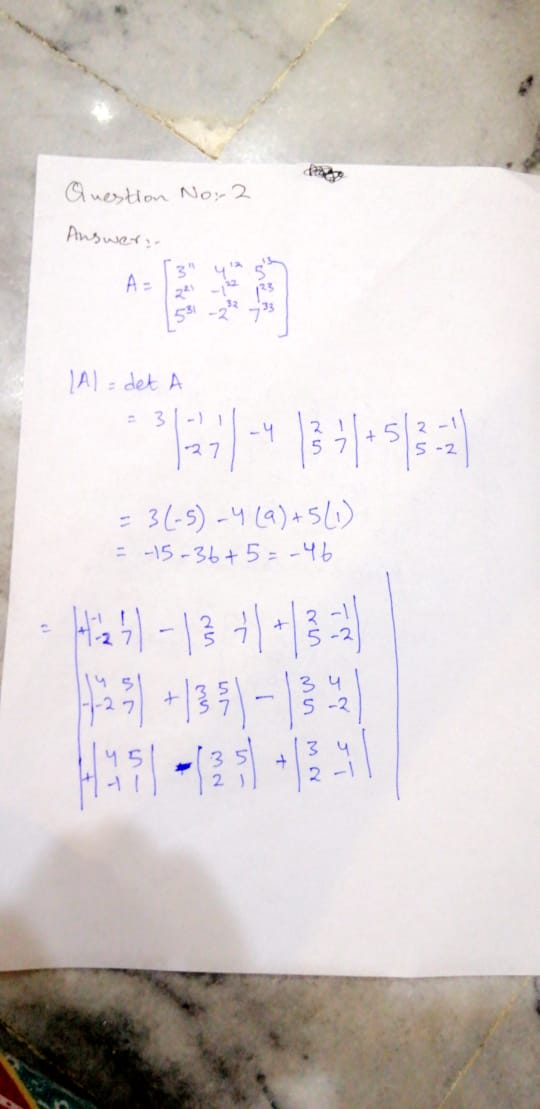 Question No:- 2
Answer:-
A = [3¹¹ 4¹² 5¹³
2²¹ -1²² 1²³
5³¹ -2³² 7³³]
|A| = det A
= 3 |-1 1| -4 |2 1| + 5 |2 -1|
|-2 7| |5 7| |5 -2|
= 3(-5) -4 (9) + 5(1)
= -15 -36 + 5 = -46
= | +|-1 1| - |2 1| + |2 -1| |
|-2 7| |5 7| |5 -2|
-|4 5| + |3 5| - |3 4|
|-2 7| |5 7| |5 -2|
+|4 5| - |3 5| + |3 4|
|-1 1| |2 1| |2 -1|